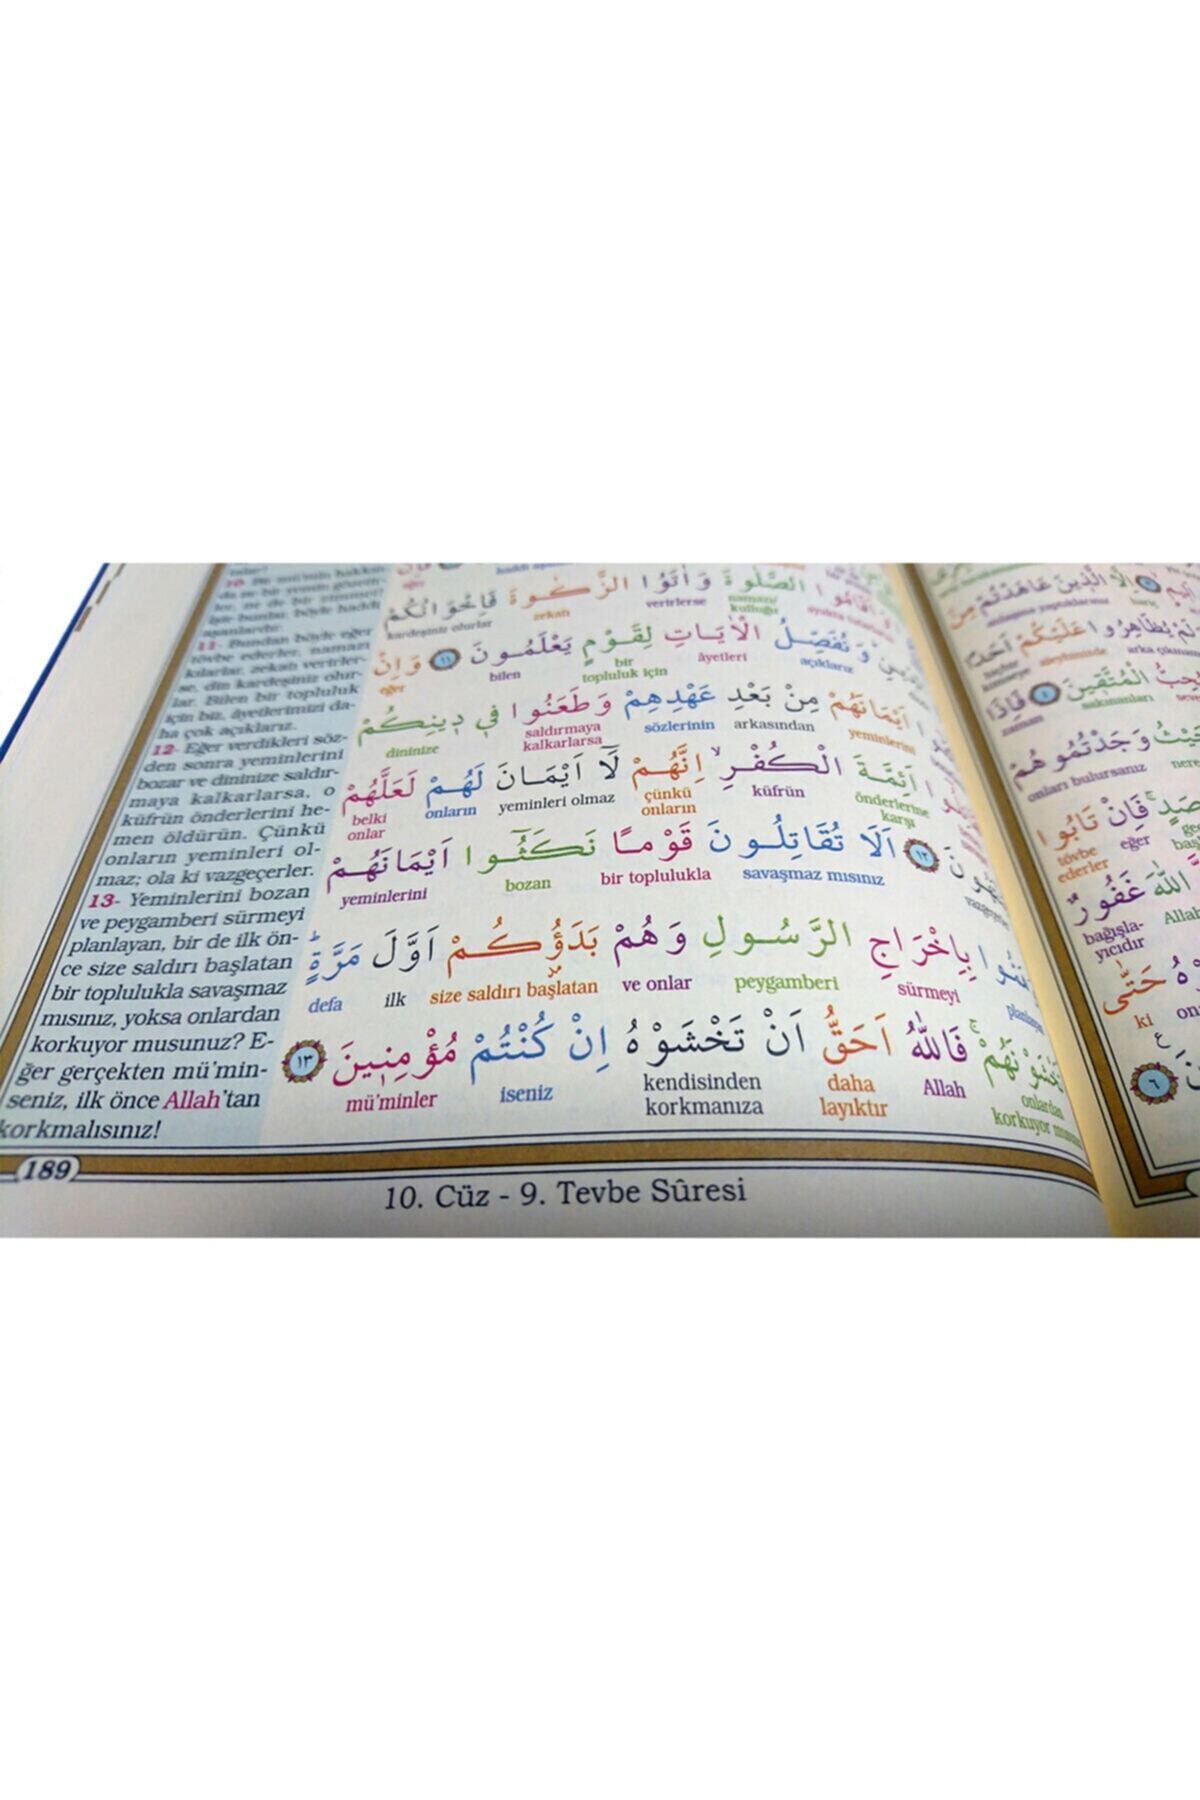 11- Bundan böyle eğer
tövbe ederler, namazı
kılarlar, zekatı verirler-
se, din kardeşiniz olur-
lar. Bilen bir topluluk
için biz, âyetlerimizi da-
ha çok açıklarız.
12- Eğer verdikleri söz-
den sonra yeminlerini
bozar ve dininize saldır-
maya kalkarlarsa, o
küfrün önderlerini he-
men öldürün. Çünkü
onların yeminleri ol-
maz; ola ki vazgeçerler.
13- Yeminlerini bozan
ve peygamberi sürmeyi
planlayan, bir de ilk ön-
ce size saldırı başlatan
bir toplulukla savaşmaz
mısınız, yoksa onlardan
korkuyor musunuz? E-
ğer gerçekten mü'min-
seniz, ilk önce Allah'tan
korkmalısınız!
اَقَامُوا الصَّلٰوةَ وَاٰتَوُا الزَّكٰوةَ فَاِخْوَانُكُمْ
namazı/ kulluğu verirlerse zekatı kardeşiniz olurlar
وَنُفَصِّلُ الْاٰيَاتِ لِقَوْمٍ يَعْلَمُونَ ﴿١١﴾ وَاِنْ
açıklarız âyetleri bir topluluk için bilen eğer
اَيْمَانَهُمْ مِنْ بَعْدِ عَهْدِهِمْ وَطَعَنُوا فٖي دٖينِكُمْ
yeminlerini arkasından sözlerinin saldırmaya kalkarlarsa dininize
اَئِمَّةَ الْكُفْرِۙ اِنَّهُمْ لَٓا اَيْمَانَ لَهُمْ لَعَلَّهُمْ
önderlerine karşı küfrün çünkü onların yeminleri olmaz onların belki onlar
﴿١٢﴾ اَلَا تُقَاتِلُونَ قَوْمًا نَكَثُٓوا اَيْمَانَهُمْ
savaşmaz mısınız bir toplulukla bozan yeminlerini
بِاِخْرَاجِ الرَّسُولِ وَهُمْ بَدَؤُ۫كُمْ اَوَّلَ مَرَّةٍؕ
sürmeyi peygamberi ve onlar size saldırı başlatan ilk defa
فَاللّٰهُ اَحَقُّ اَنْ تَخْشَوْهُ اِنْ كُنْتُمْ مُؤْمِنٖينَ ﴿١٣﴾
onlardan korkuyor Allah daha layıktır kendisinden korkmanıza iseniz mü'minler
189
10. Cüz - 9. Tevbe Sûresi
عَلَيْكُمْ اَحَدًا
الْمُتَّقٖينَ ﴿٤﴾ فَاِذَا
sakınanları zaman
وَجَدْتُمُوهُمْ
onları bulursanız
فَاِنْ تَابُوا
eğer tövbe ederler
اللّٰهَ غَفُورٌ
Allah bağışla-
yıcıdır
حَتّٰى
ki
ع
﴿٦﴾